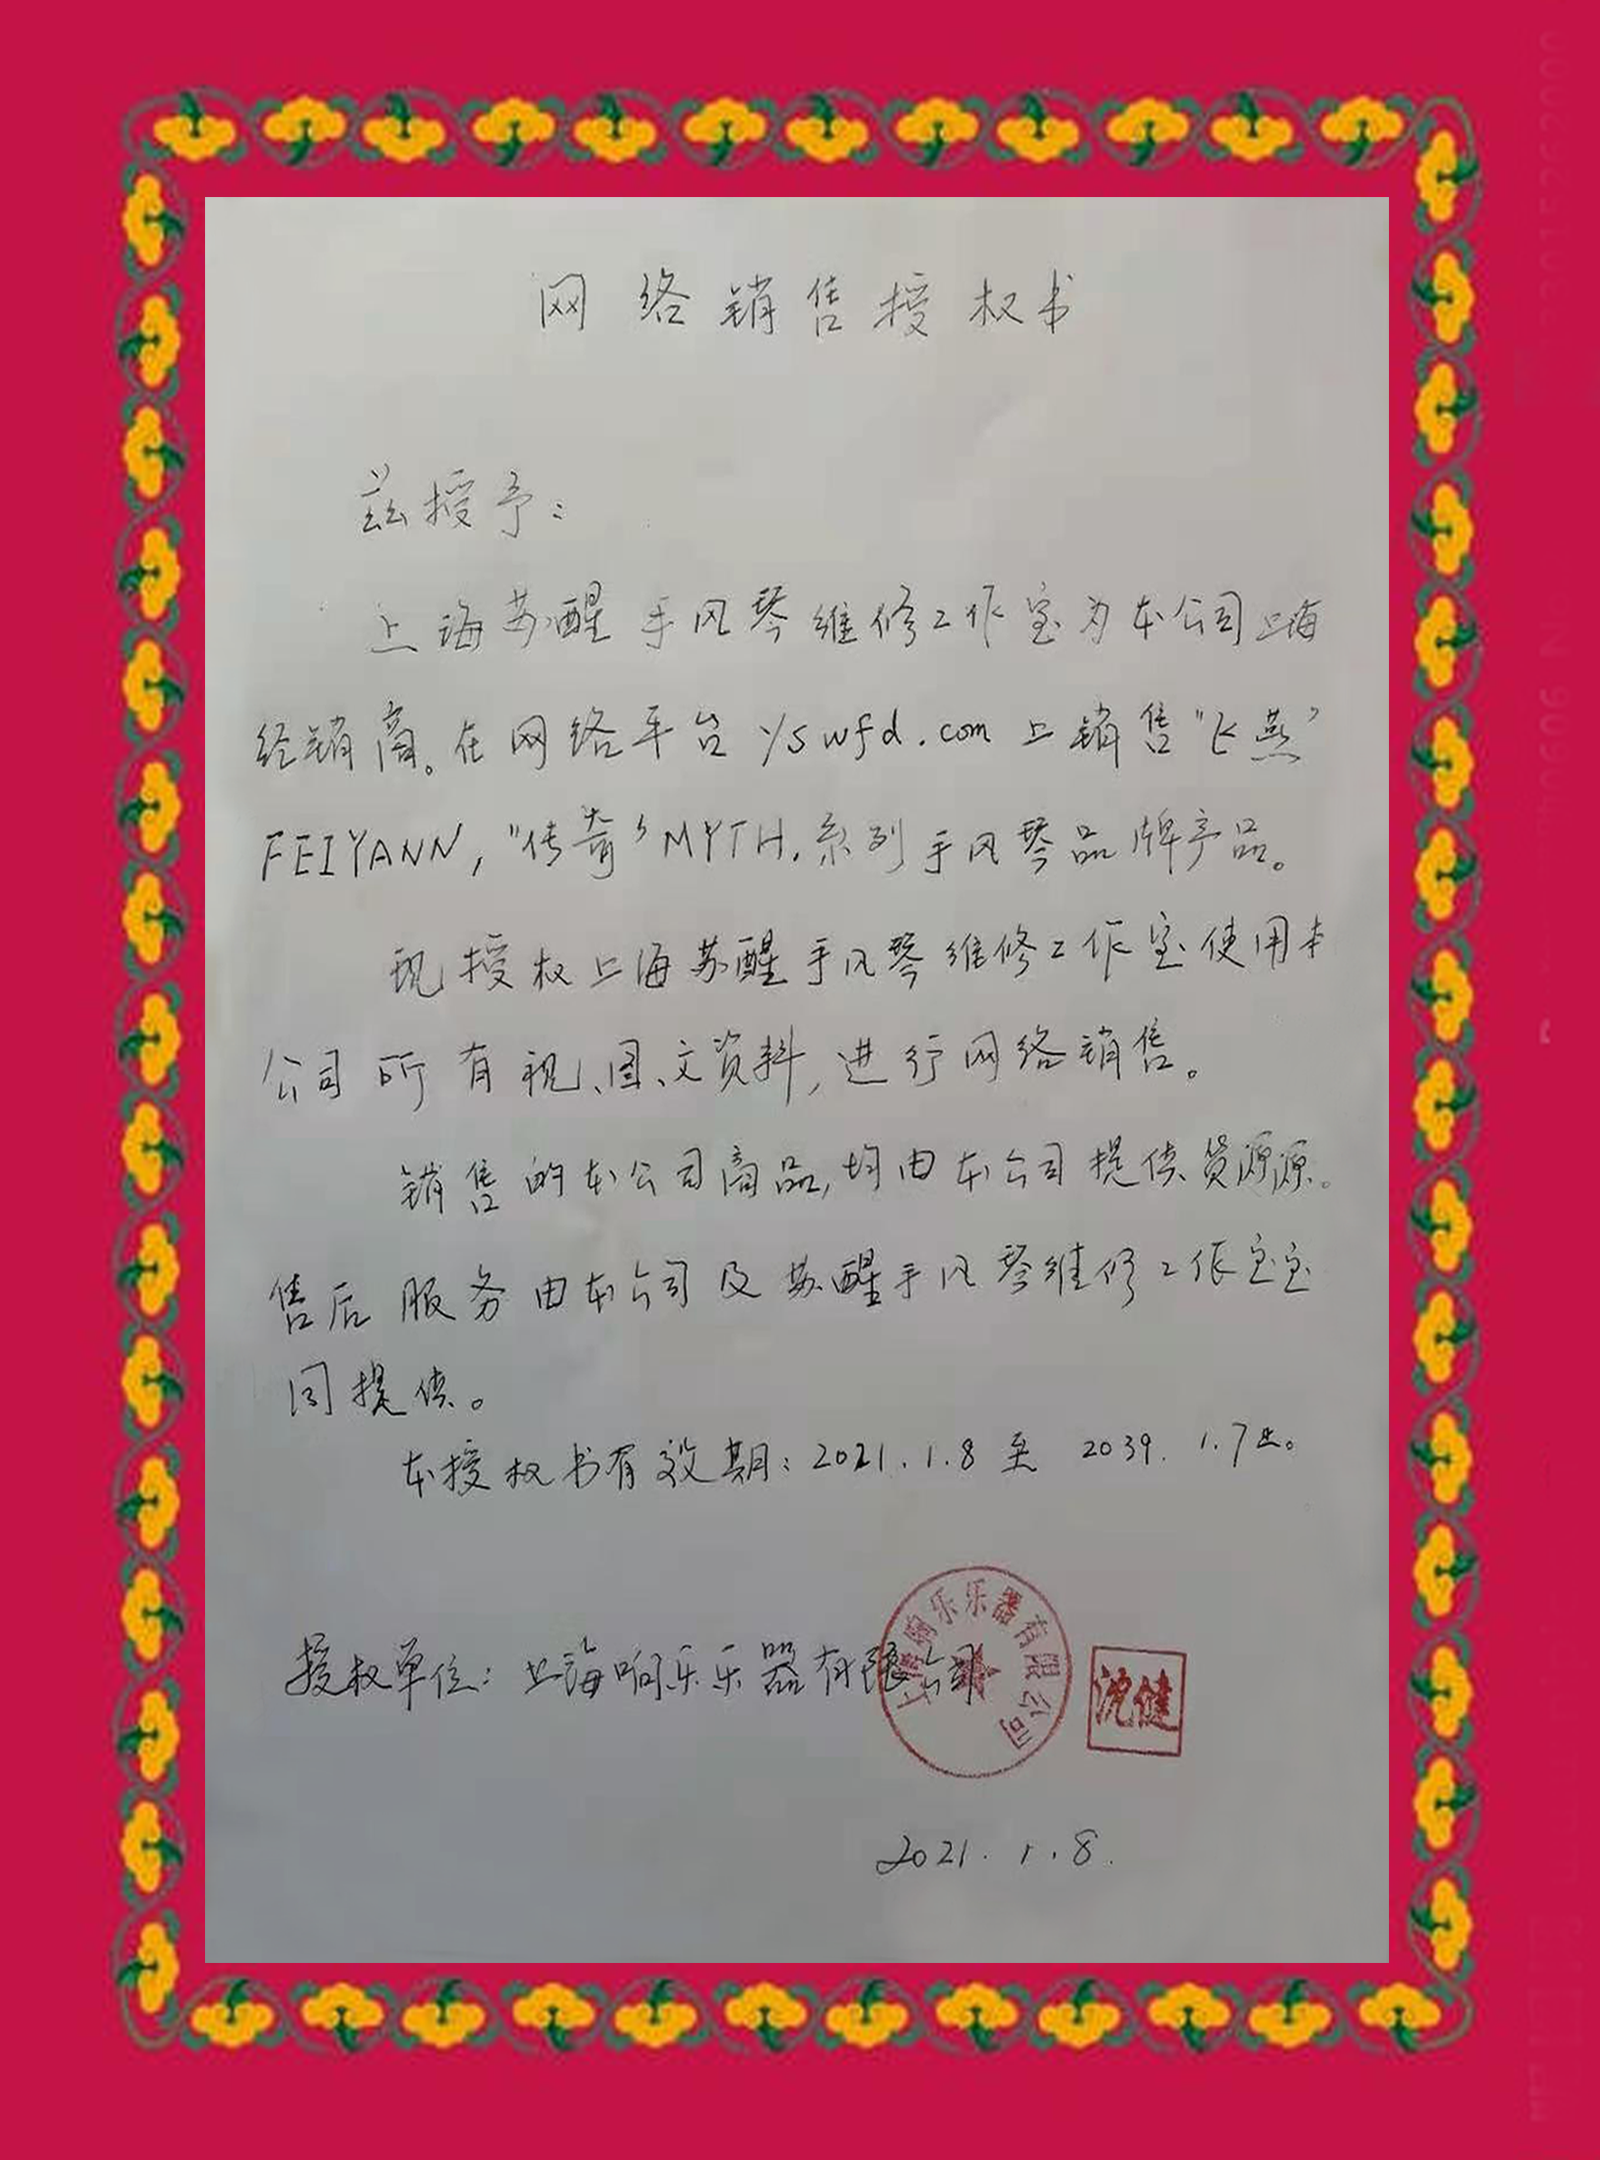 网络销售授权书
兹授予：
上海苏醒手风琴维修工作室为本公司上海
经销商。在网络平台 yswfd.com 上销售“飞燕”
FEIYANN，“传奇”MYTH.系列手风琴品牌产品。
现授权上海苏醒手风琴维修工作室使用本
公司所有视、图、文资料，进行网络销售。
销售的本公司商品，均由本公司提供货源源。
售后服务由本公司及苏醒手风琴维修工作室室
同提供。
本授权书有效期：2021.1.8至 2039.1.7止。
授权单位：上海响乐乐器有限公司
上海响乐乐器有限公司
沈健
2021.1.8.